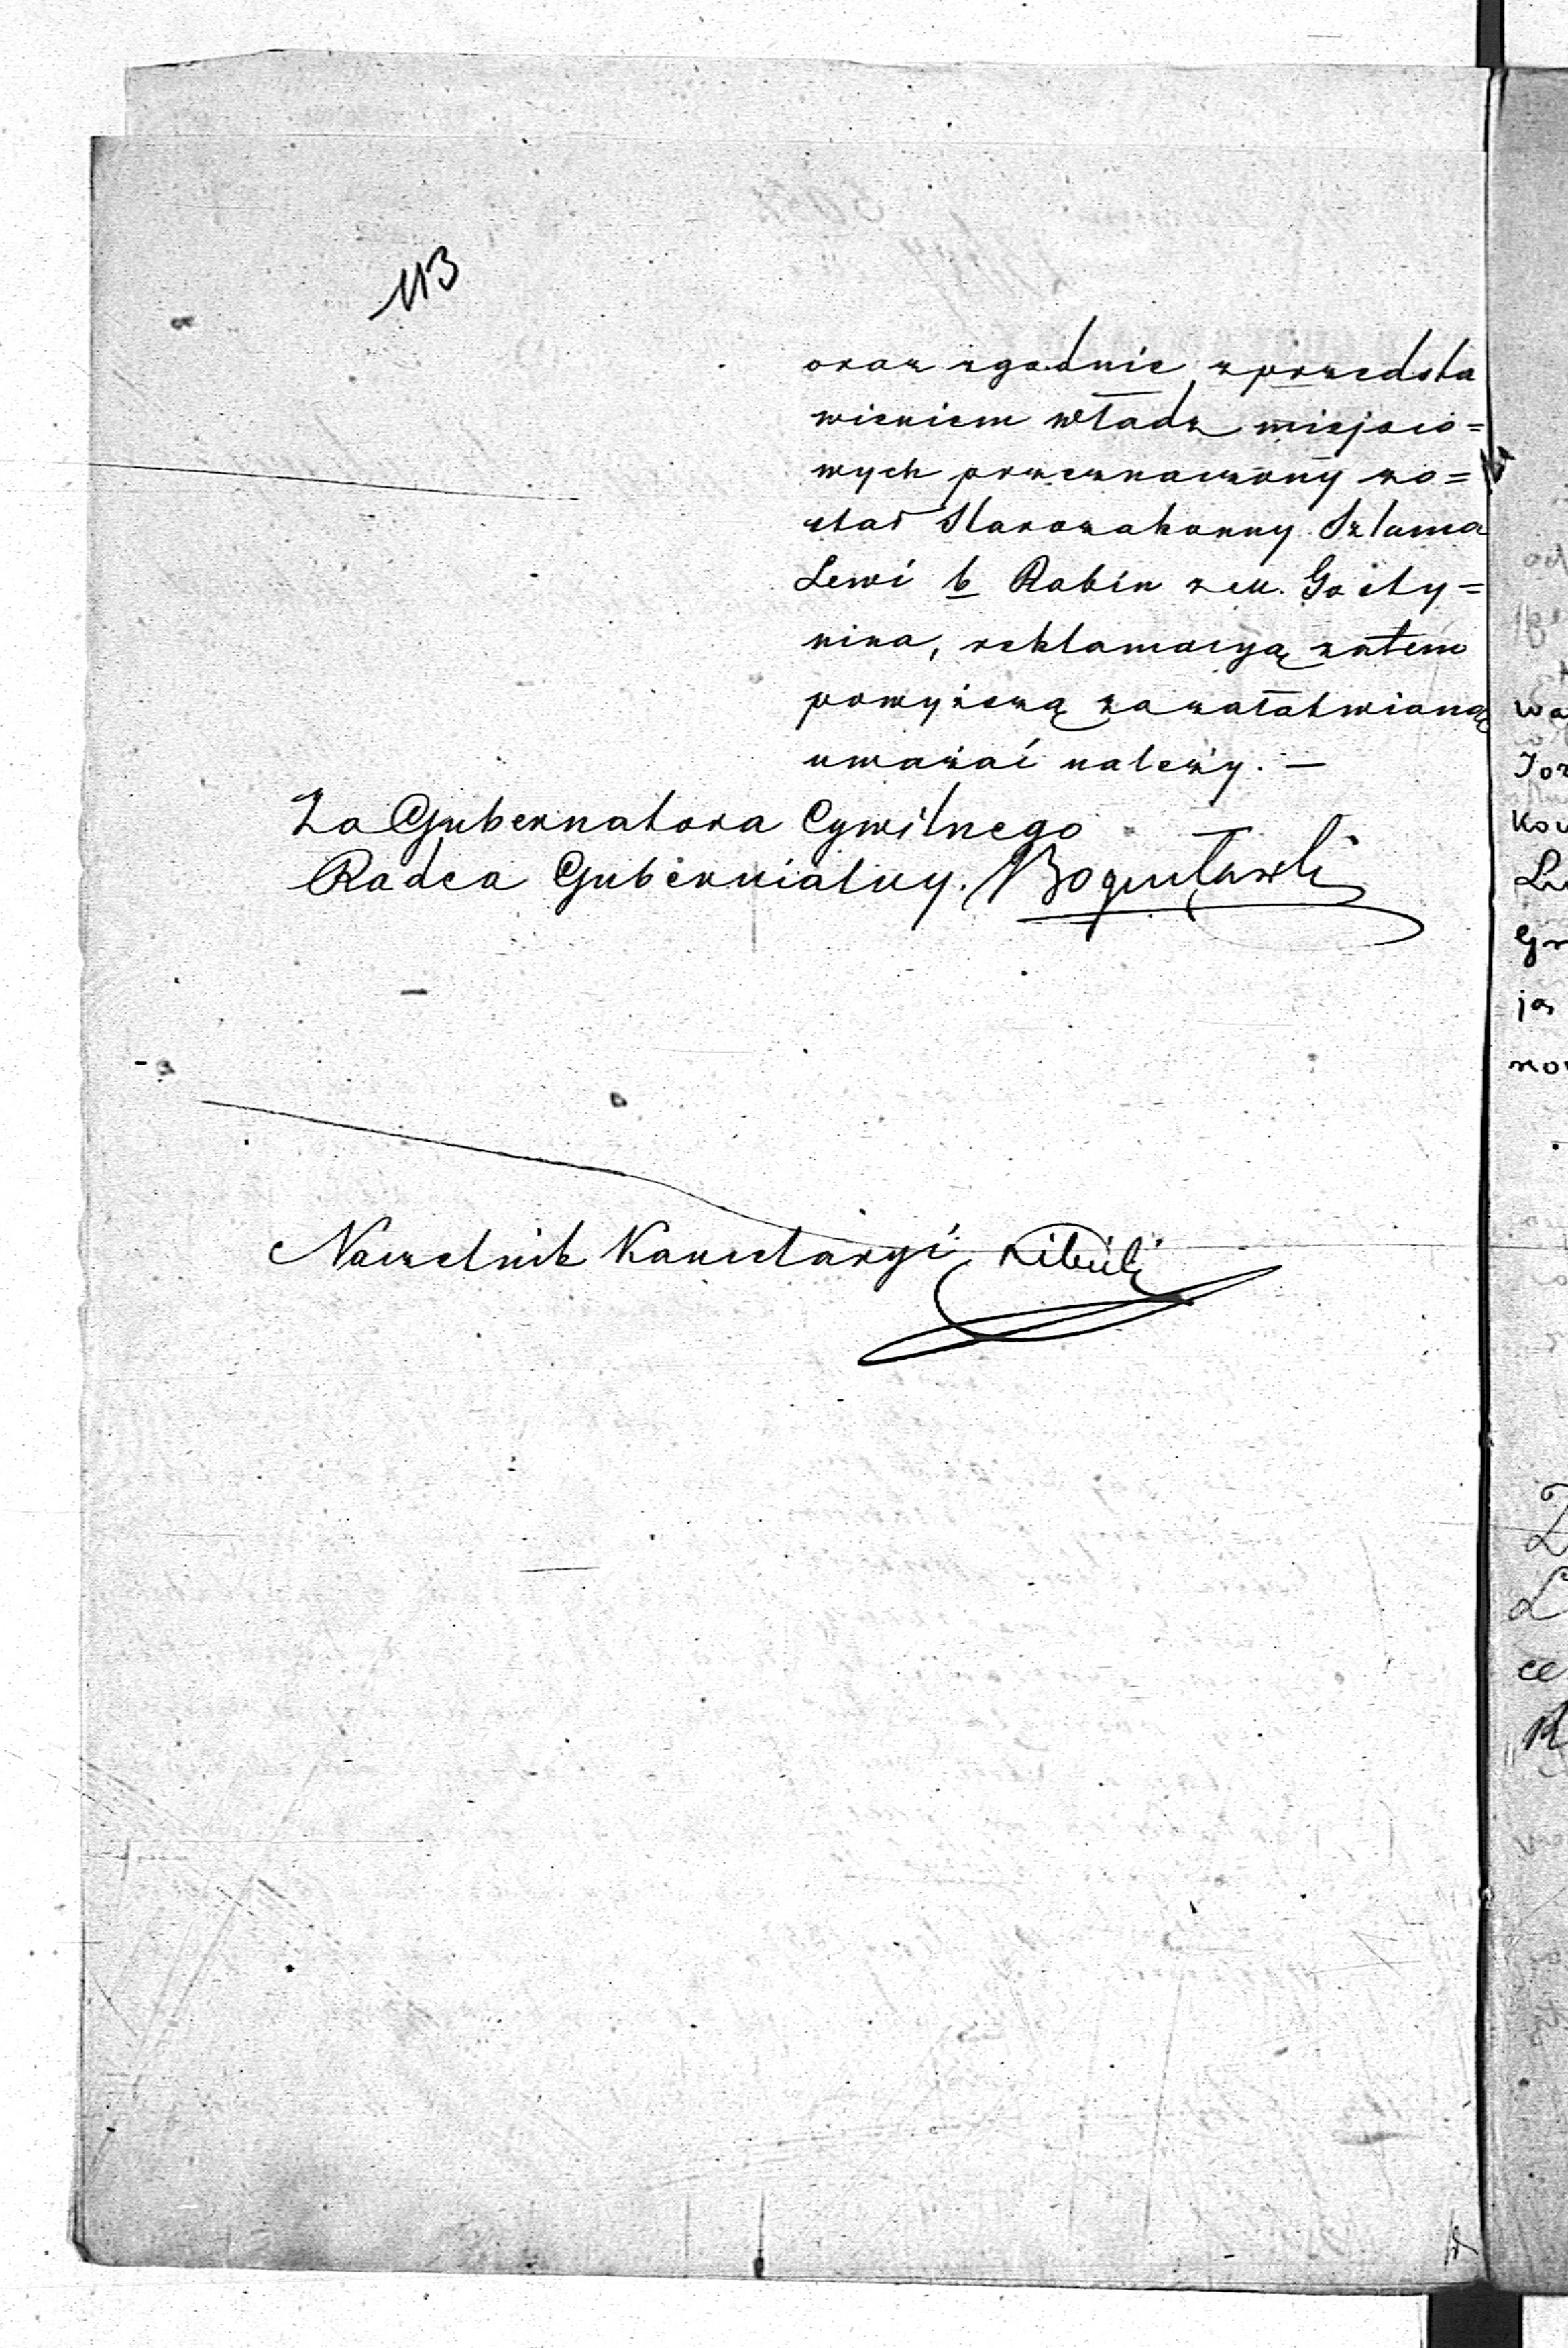 113
oraz zgodnie z przedsta
wieniem władz miejsco=
wych przeznaczony zo=
stał Starozakonny Szlama
Lewi b Rabin z m. Gosty=
nina, reklamacyą zatem
powyższą za załatwianą
uważać należy. —
Za Gubernatora Cywilnego
Radca Gubernialny. Bogusławski
Naczelnik Kancelaryi